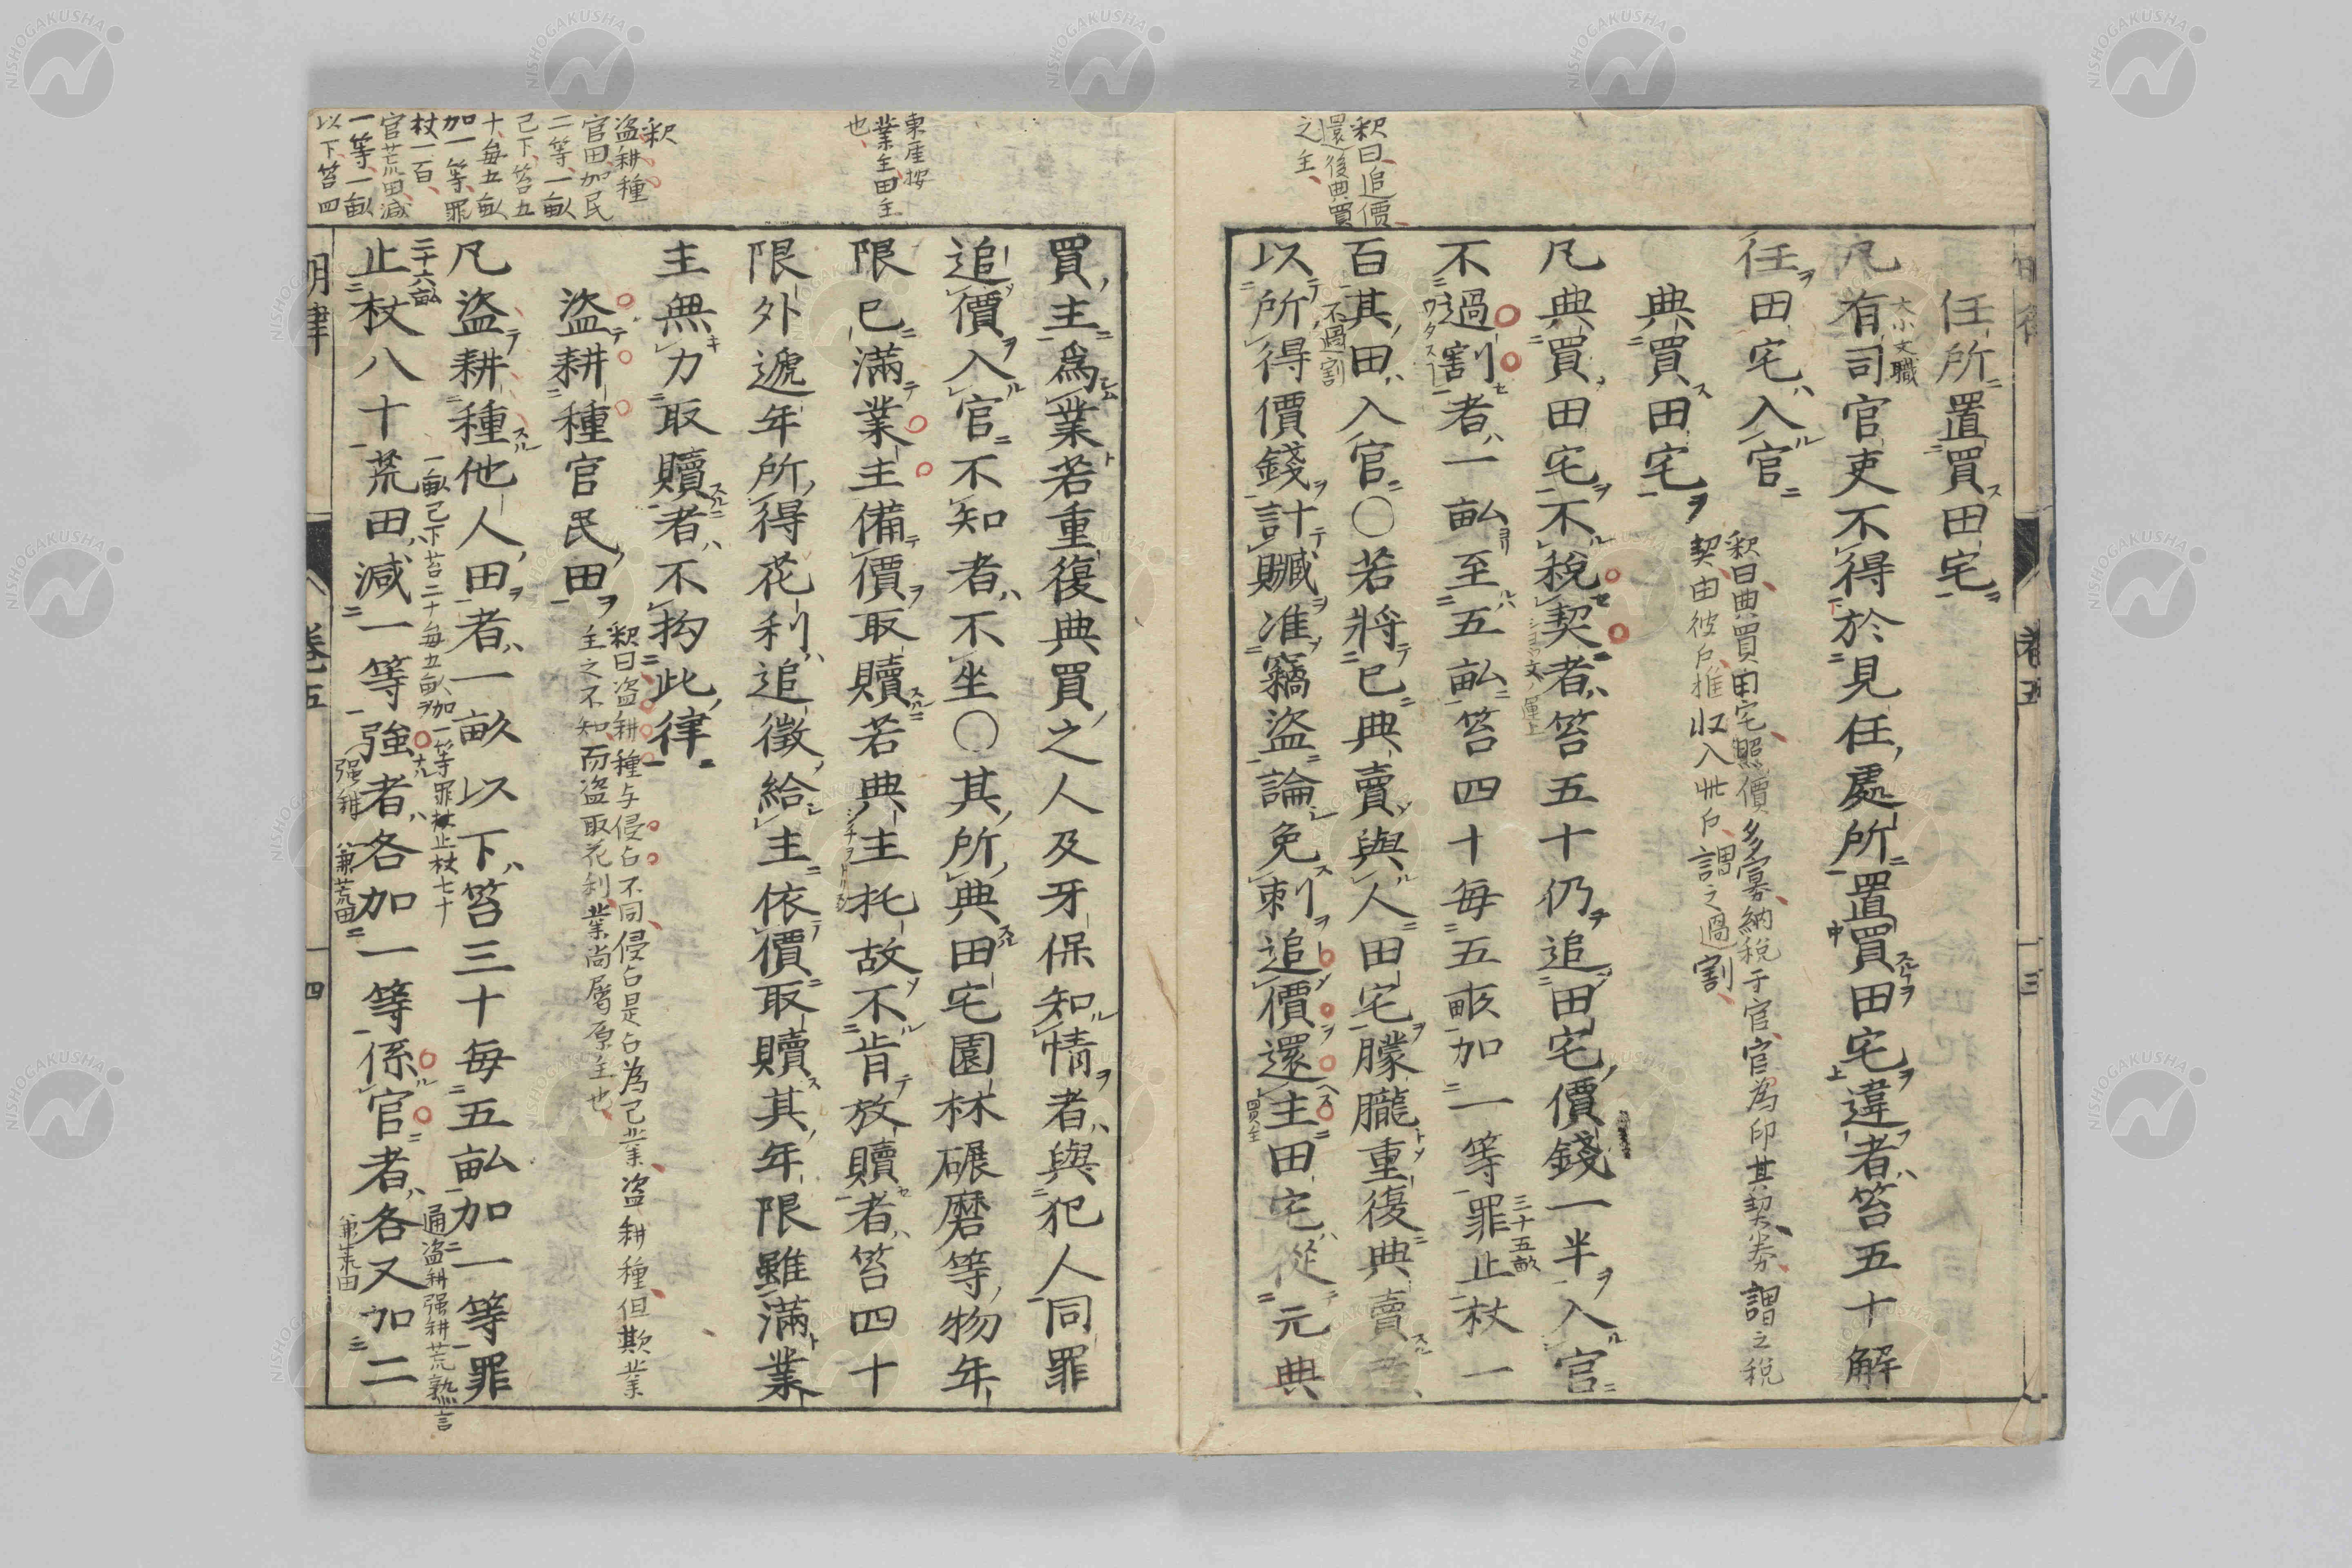 任所置買田宅
凡有司官吏不得於見任處所置買田宅違者笞五十解
大小文職
任田宅入官
典買田宅
釈曰典買田宅照價多寡納税于官官為印其契券謂之税
契由彼戸推収入此戸謂之過割
凡典買田宅不税契者笞五十仍追田宅價錢一半入官
不過割者一畝至五畝笞四十毎五畝加一等罪止杖一
三十五畝
百其田入官○若將已典賣與人田宅朦朧重復典賣者
不過割
以所得價錢計贓准竊盗論免刺追價還主田宅從元典
買主
釈曰追價
還後典買
之主
買主爲業若重復典買之人及牙保知情者與犯人同罪
追價入官不知者不坐○其所典田宅園林碾磨等物年
限已滿業主備價取贖若典主托故不肯放贖者笞四十
限外遞年所得花利追徴給主依價取贖其年限雖滿業
主無力取贖者不拘此律
東産按
業主田主
也
盗耕種官民田
釈曰盗耕種与侵占不同侵占是占為己業盗耕種但欺業
主之不知而盗取花利業尚属原主也
凡盗耕種他人田者一畝以下笞三十毎五畝加一等罪
一畝已下笞三十毎五畝加一等罪止杖七十
通盗耕强耕荒熟言
二十六畝
止杖八十荒田減一等強者各加一等係官者各又加二
强耕
兼荒田
釈
盗耕種
官田加民
二等一畝
已下笞五
十毎五畝
加一等罪
杖一百
官荒田減
一等一畝
以下笞四
明律
巻五
十四
巻五
十三
NISHOGAKUSHA